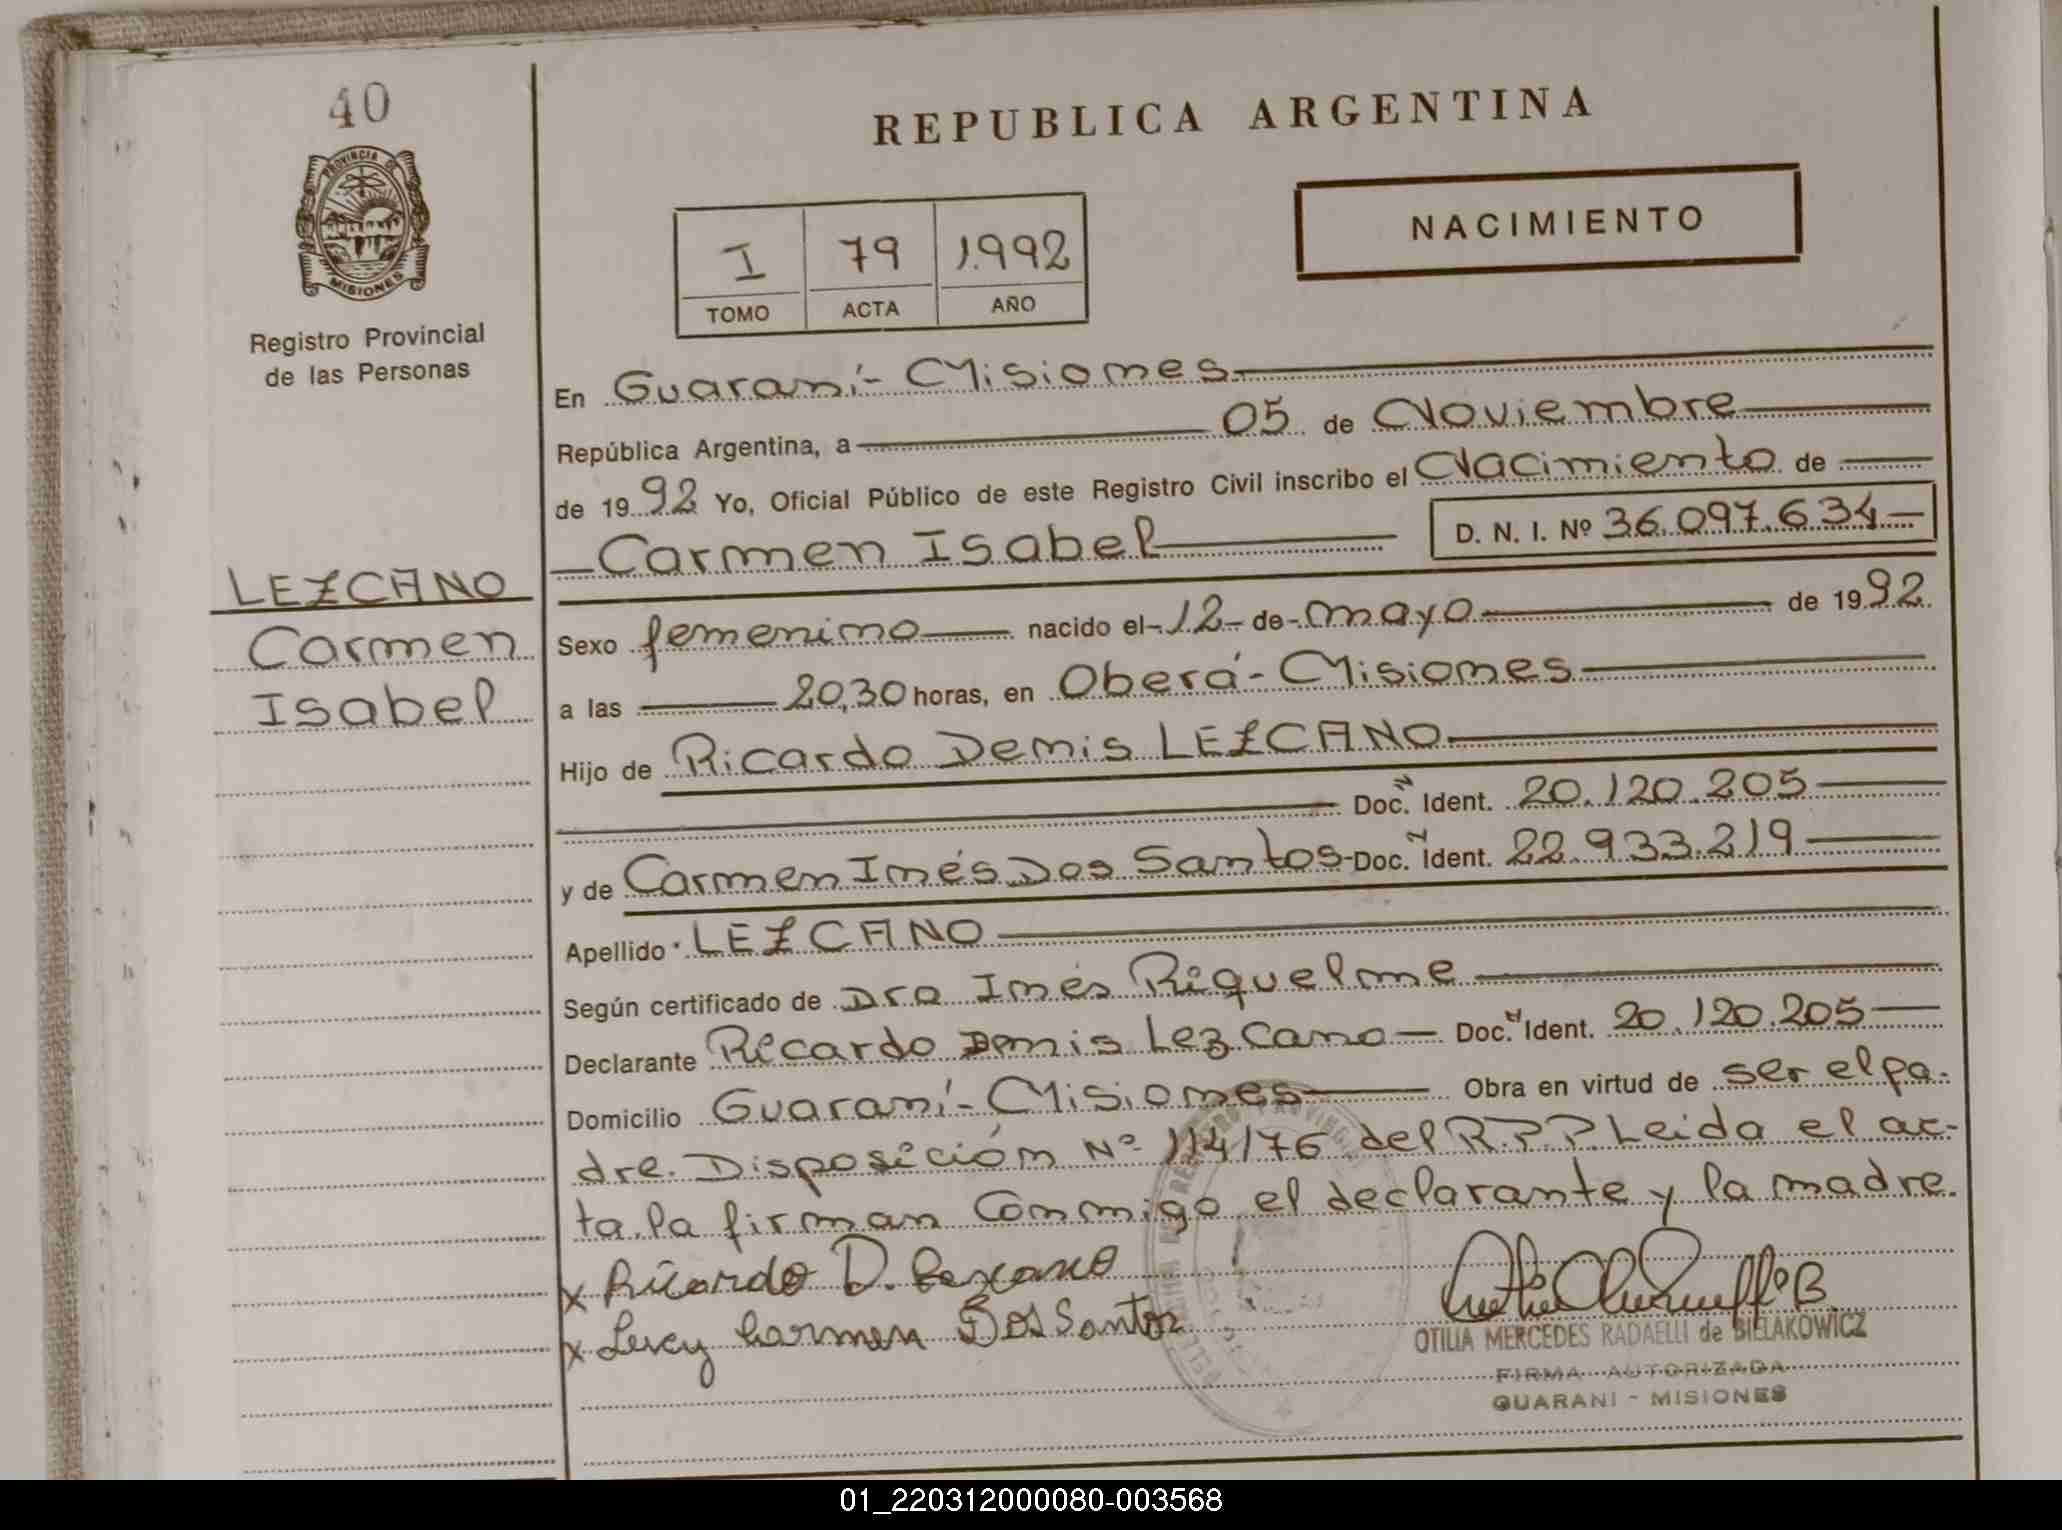 40
PROVINCIA DE
MISIONES
Registro Provincial
de las Personas
LEZCANO
Carmen
Isabel
REPUBLICA ARGENTINA
I 79 1.992
TOMO ACTA AÑO
NACIMIENTO
En Guaraní- Misiones
República Argentina, a 05 de Noviembre
de 1992 Yo, Oficial Público de este Registro Civil inscribo el Nacimiento de
Carmen Isabel D. N. I. Nº 36.097.634
Sexo femenino nacido el 12 de mayo de 1992
a las 20,30 horas, en Oberá- Misiones
Hijo de Ricardo Denis LEZCANO
Doc. Ident. 20.120.205
y de Carmen Inés Dos Santos Doc. Ident. 22.933.219
Apellido LEZCANO
Según certificado de Dra Inés Riquelme
Declarante Ricardo Denis Lezcano Doc. Ident. 20.120.205
Domicilio Guaraní- Misiones Obra en virtud de ser el pa-
dre. Disposición Nº 114/76 del R.P.P. Leida el ac-
ta, la firman conmigo el declarante y la madre.
x Ricardo D. Lezcano
x Lucy Carmen Dos Santos
OTILIA MERCEDES RADAELLI de BIELAKOWICZ
FIRMA AUTORIZADA
GUARANI - MISIONES
01_220312000080-003568